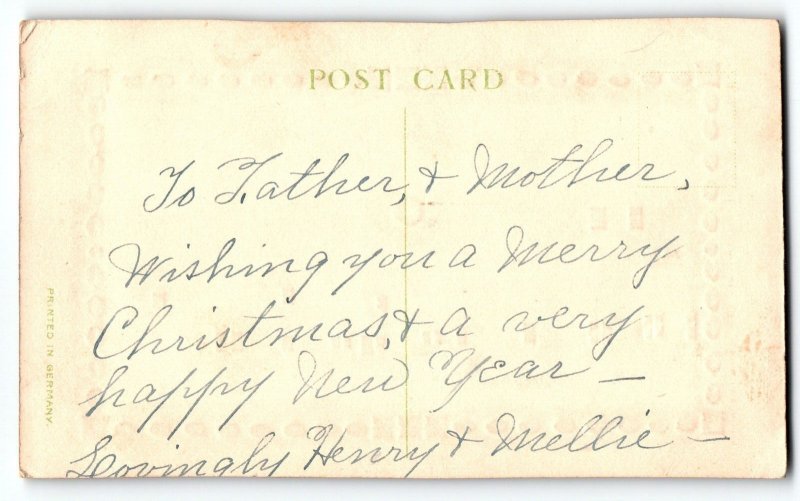 POST CARD
To Father, & Mother,
Wishing you a Merry
Christmas, & a very
happy New Year —
Lovingly Henry & Mellie —
PRINTED IN GERMANY.